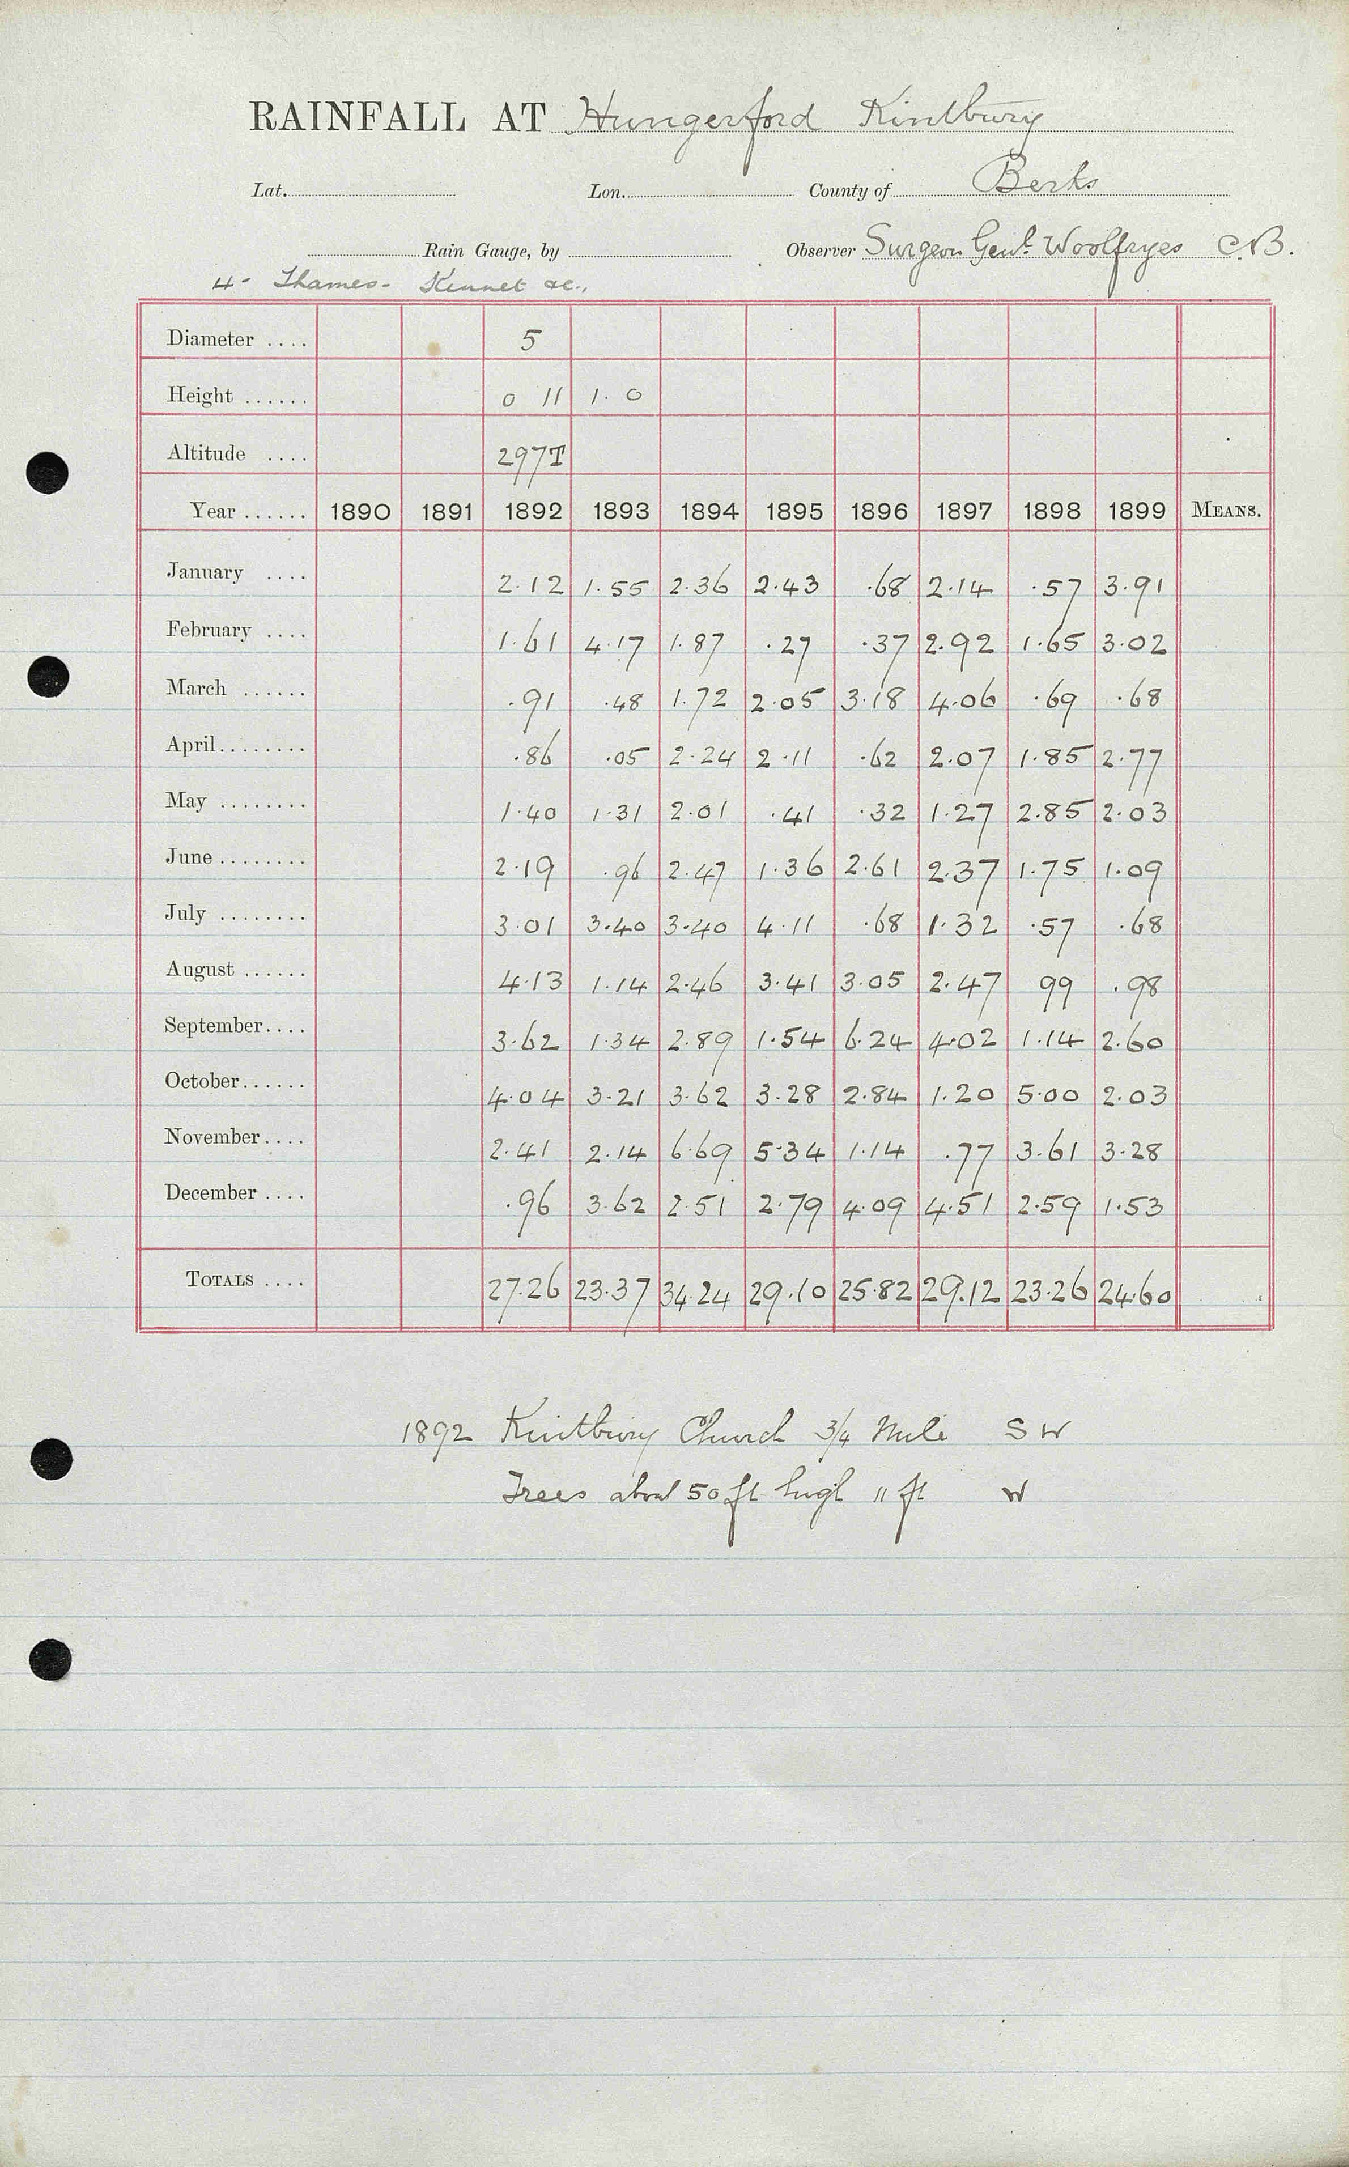 RAINFALL AT Hungerford Kintbury
Lat. Lon. County of Berks
Rain Gauge, by Observer Surgeon Genl. Woolfryes C.B.
4- Thames- Kennet &c.,
Diameter .... 5
Height ...... 0 11 1. 0
Altitude .... 297T
Year ...... 1890 1891 1892 1893 1894 1895 1896 1897 1898 1899 MEANS.
January .... 2.12 1.55 2.36 2.43 .68 2.14 .57 3.91
February .... 1.61 4.17 1.87 .27 .37 2.92 1.65 3.02
March ...... .91 .48 1.72 2.05 3.18 4.06 .69 .68
April........ .86 .05 2.24 2.11 .62 2.07 1.85 2.77
May ........ 1.40 1.31 2.01 .41 .32 1.27 2.85 2.03
June ........ 2.19 .96 2.47 1.36 2.61 2.37 1.75 1.09
July ........ 3.01 3.40 3.40 4.11 .68 1.32 .57 .68
August ...... 4.13 1.14 2.46 3.41 3.05 2.47 99 .98
September.... 3.62 1.34 2.89 1.54 6.24 4.02 1.14 2.60
October...... 4.04 3.21 3.62 3.28 2.84 1.20 5.00 2.03
November.... 2.41 2.14 6.69 5.34 1.14 .77 3.61 3.28
December .... .96 3.62 2.51 2.79 4.09 4.51 2.59 1.53
TOTALS .... 27.26 23.37 34.24 29.10 25.82 29.12 23.26 24.60
1892 Kintbury Church 3/4 Mile S W
Trees about 50 ft high 11 ft W